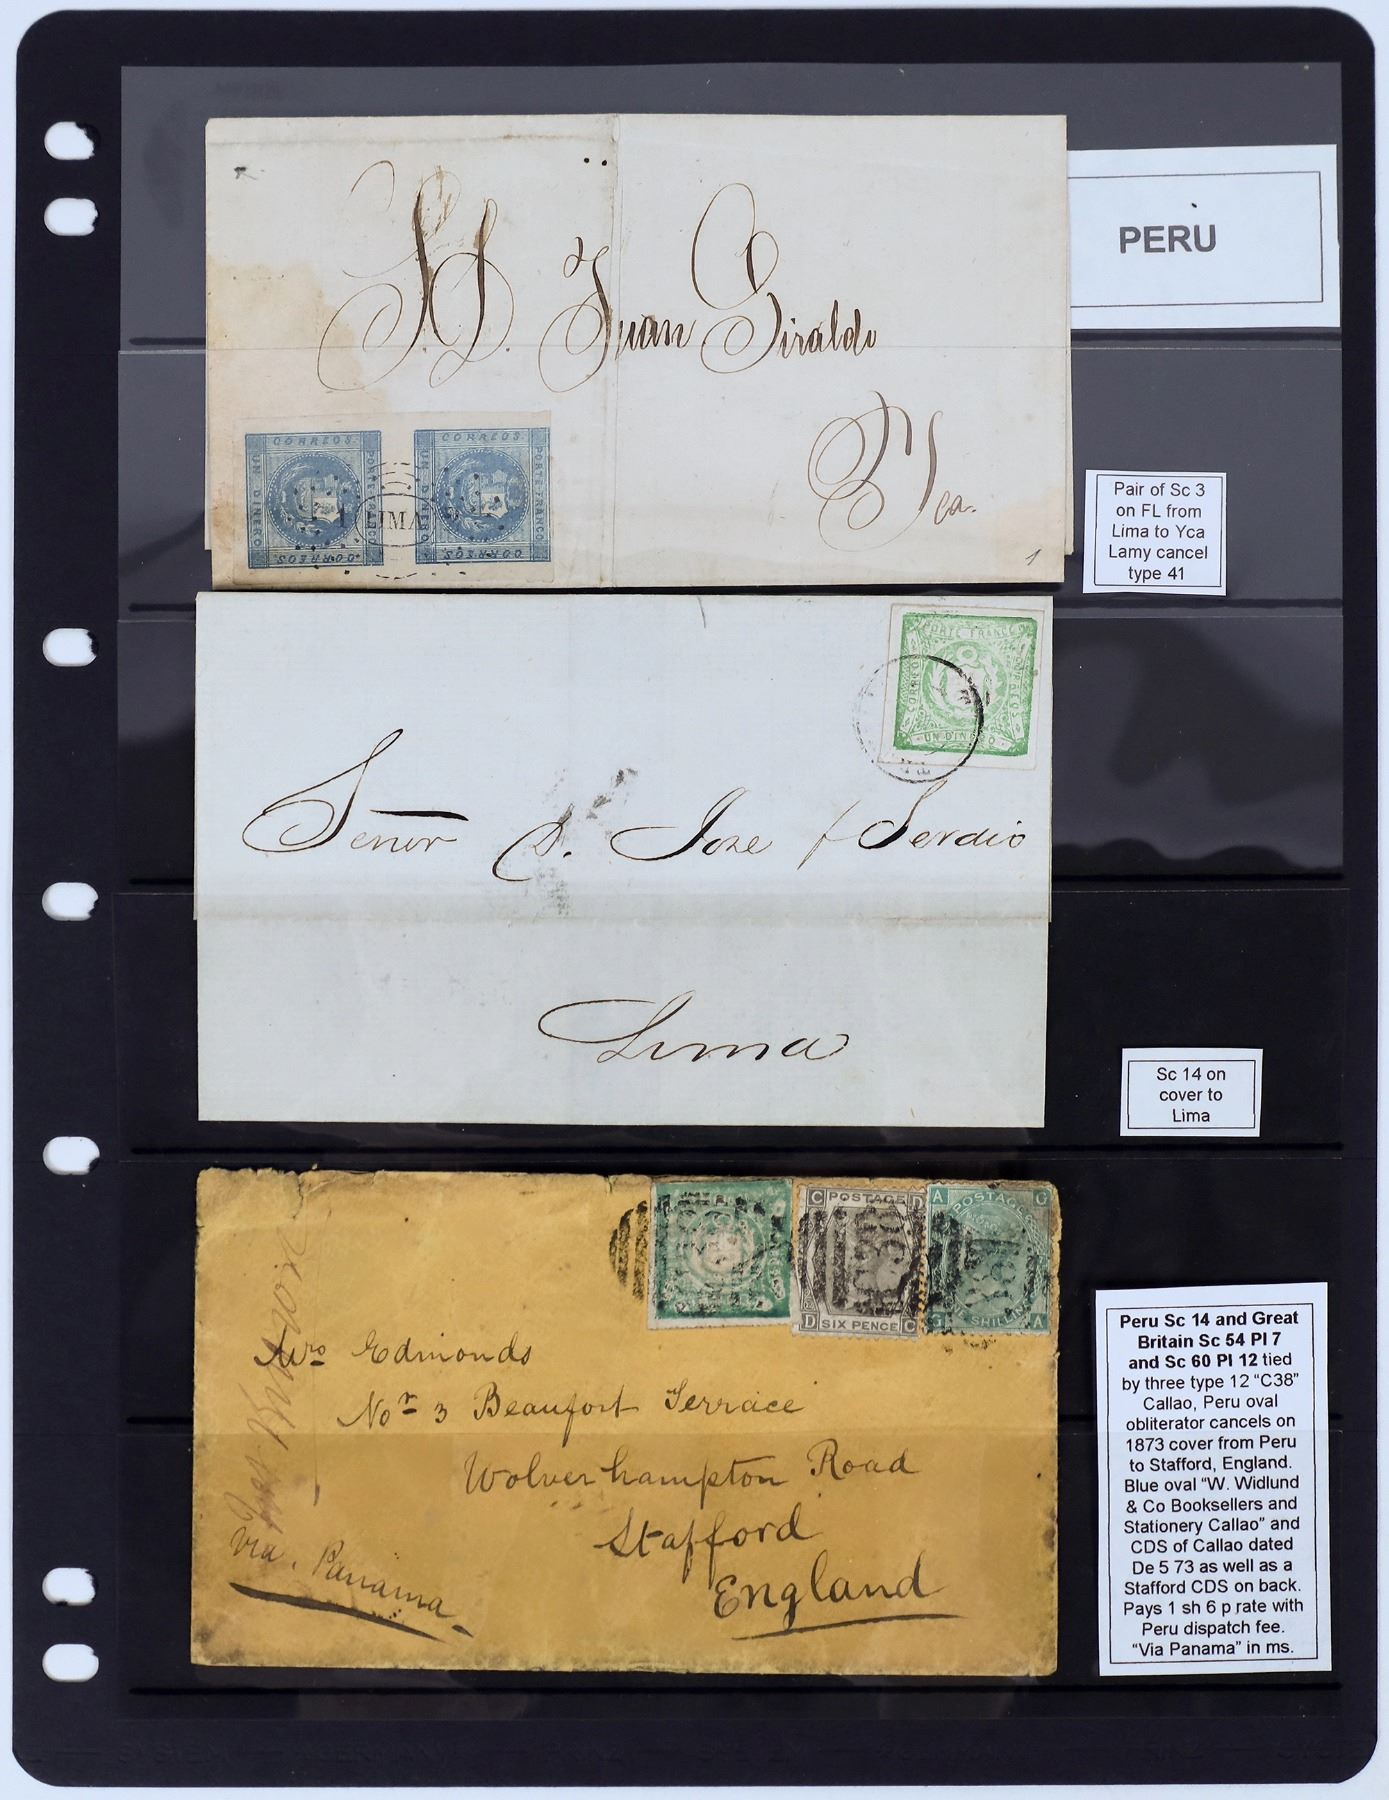 PERU
S. D. Juan Giraldo
Yca.
CORREOS
UN DINERO
PORTE FRANCO
CORREOS
CORREOS
UN DINERO
PORTE FRANCO
CORREOS
1 LIMA
1
Pair of Sc 3
on FL from
Lima to Yca
Lamy cancel
type 41
PORTE FRANCO
CORREOS
UN DINERO
Señor D. Jose
Lima
Sc 14 on
cover to
Lima
C POSTAGE D
D SIX PENCE C
A POSTAGE G
G ONE SHILLING A
C38
Mrs Edmonds
Nor 3 Beaufort Terrace
Wolverhampton Road
Stafford
England
Via. Panama
Peru Sc 14 and Great
Britain Sc 54 Pl 7
and Sc 60 Pl 12 tied
by three type 12 “C38”
Callao, Peru oval
obliterator cancels on
1873 cover from Peru
to Stafford, England.
Blue oval “W. Widlund
& Co Booksellers and
Stationery Callao” and
CDS of Callao dated
De 5 73 as well as a
Stafford CDS on back.
Pays 1 sh 6 p rate with
Peru dispatch fee.
“Via Panama” in ms.